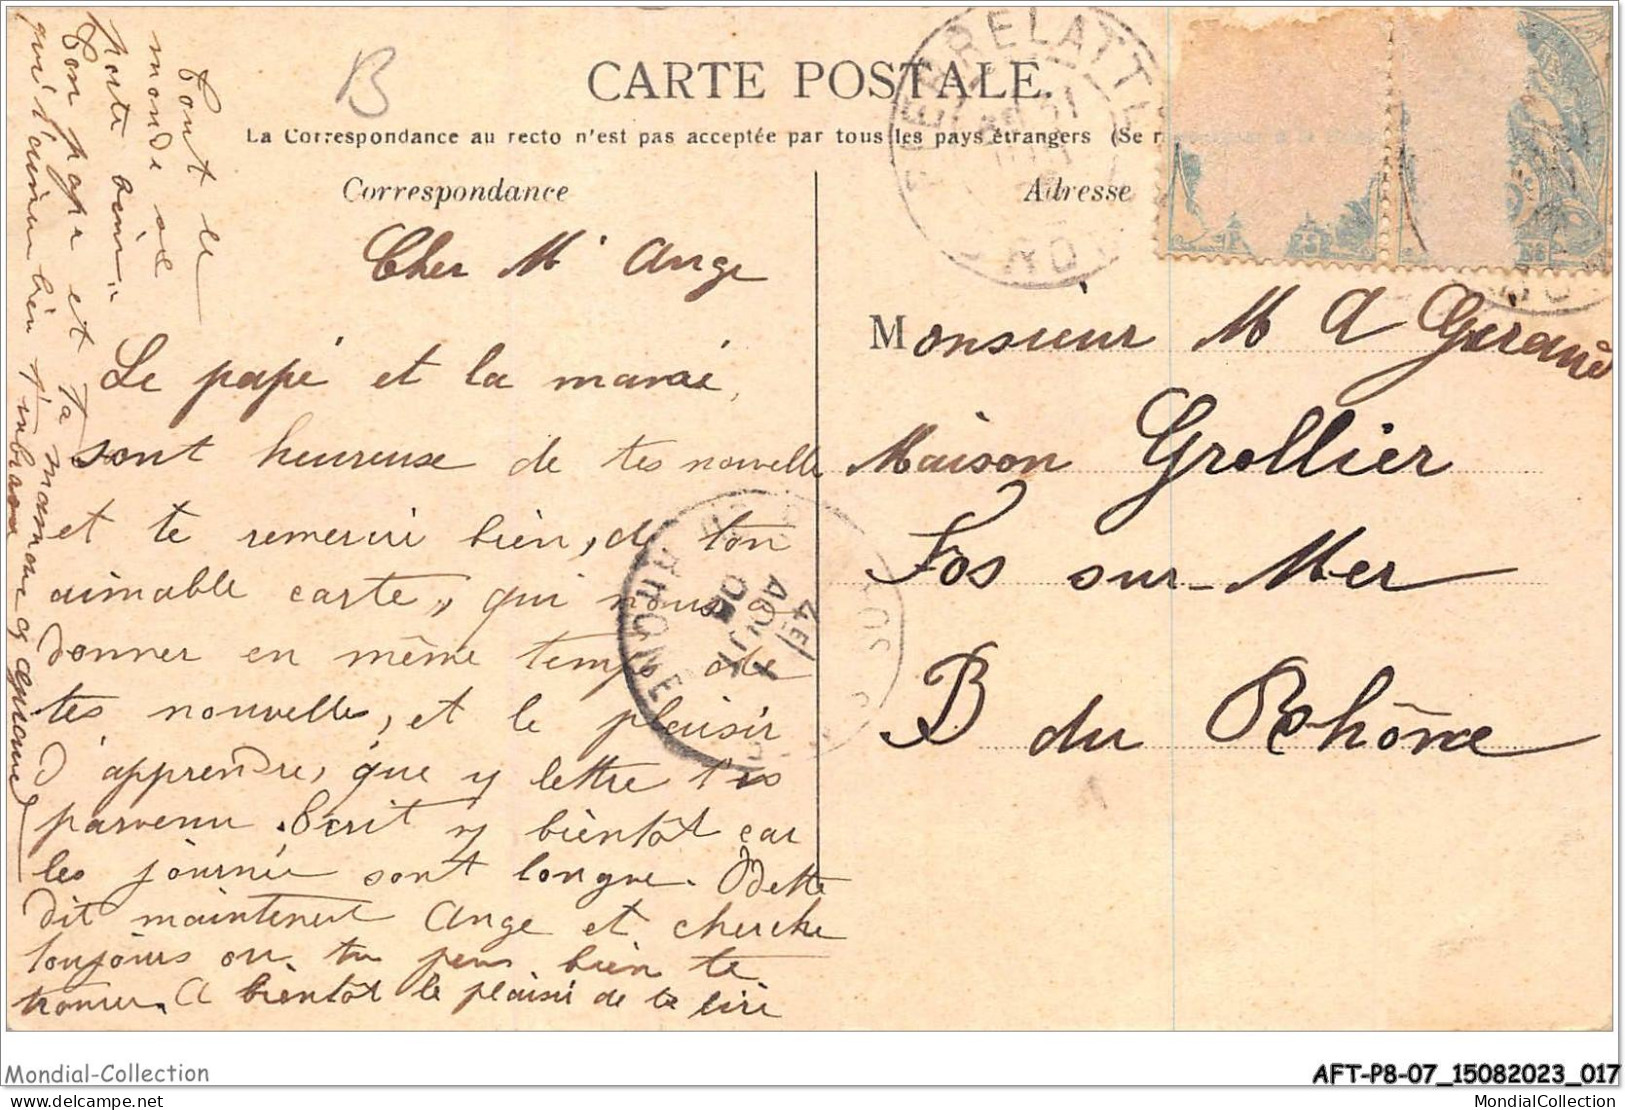 B
CARTE POSTALE.
La Correspondance au recto n'est pas acceptée par tous les pays étrangers (Se r
Correspondance
Adresse
PIERRELATTE
Cher M' Ange
Le papé et la maraé,
sont heureuse de tes nouvelle
et te remerciri bien, de ton
aimable carte, qui nous a
donner en même temp de
tes nouvelles, et le plaisir
d'apprendre, que y lettre t'es
parvenu. Ecrit y bientôt car
les journéi sont longue. Odette
dit maintenent Ange et cherche
toujours ou tu peus bien te
trouver. A bientôt le plaisir de te lire
Tout le
monde se
porte bien.
Ton papa et ta maman
qui t'aime bien t'embrasse
Monsieur M A Géraud
Maison Grollier
Fos sur-Mer
B du Rhône
4E/
AOUT
05
RHONE
Mondial-Collection
AFT-P8-07_15082023_017
delcampe.net
MondialCollection